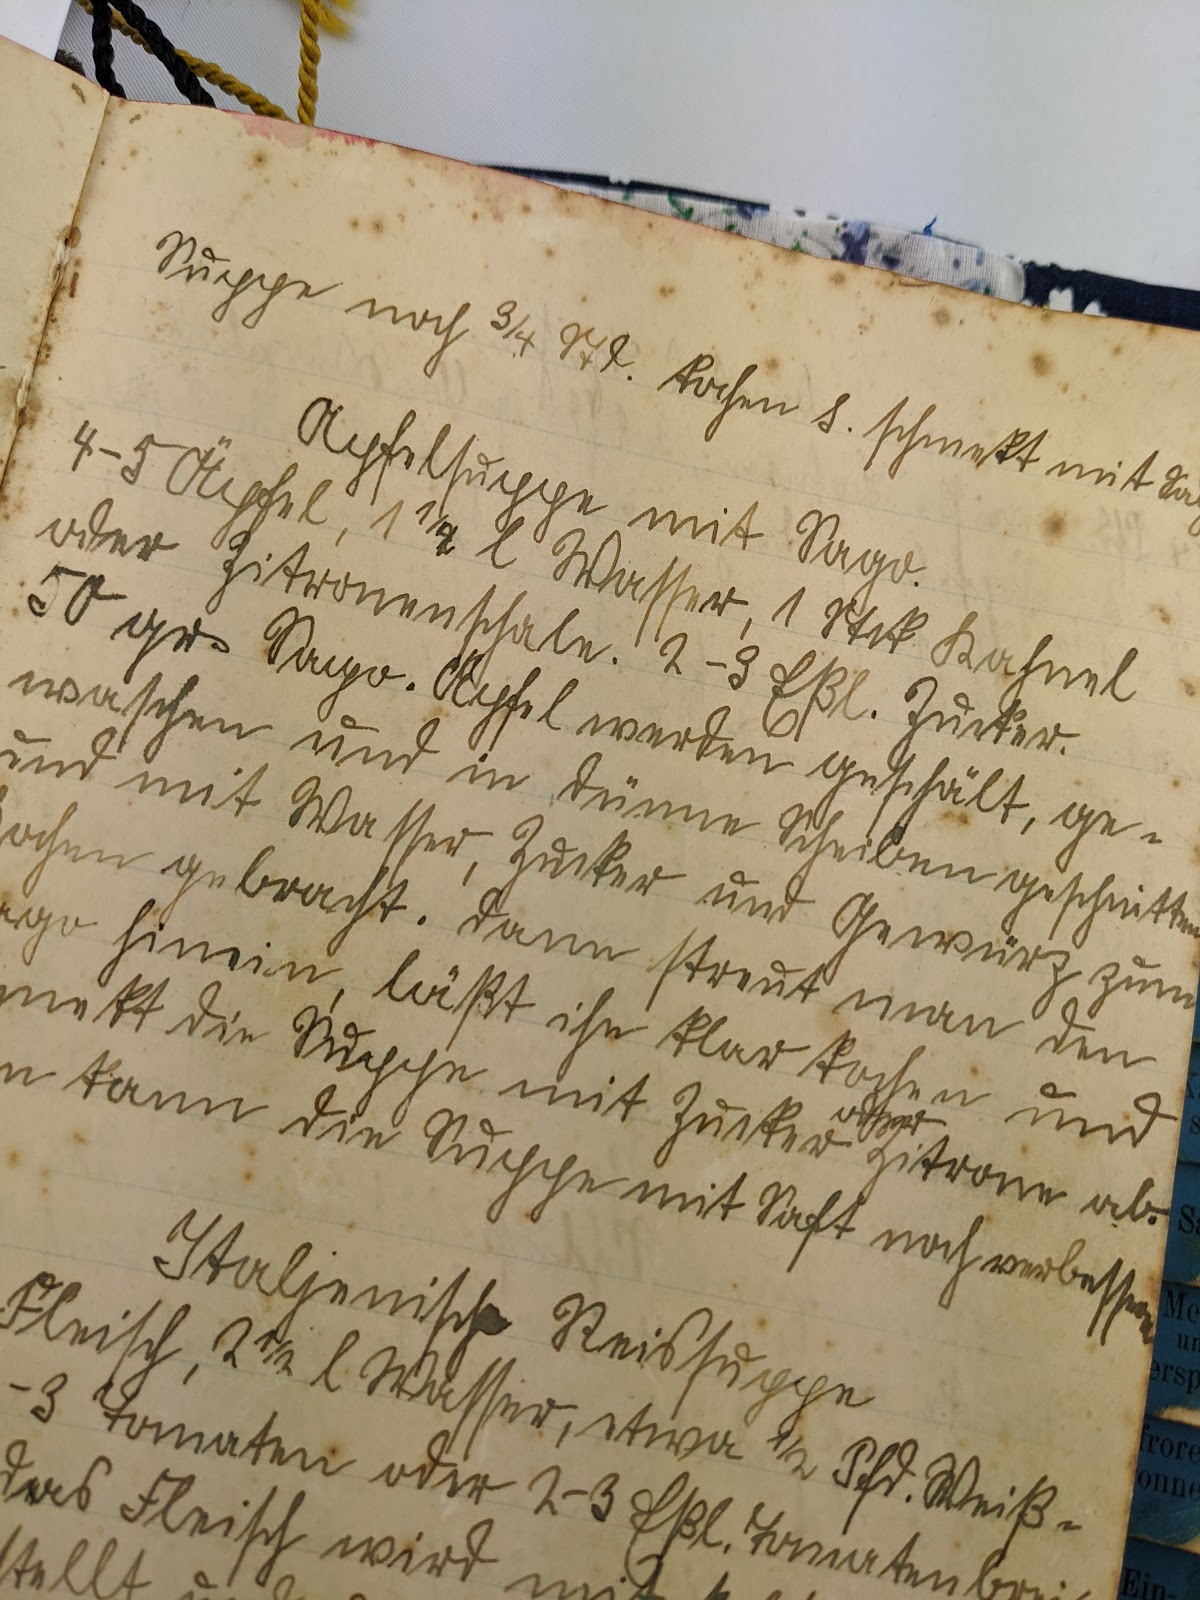 Suppe noch 3/4 Std. kochen s. schmekt mit
Apfelsuppe mit Sago.
4-5 Äpfel, 1 1/2 l Wasser, 1 Stck Kahnel
oder Zitronenschale. 2-3 Eßl. Zucker.
50 gr. Sago. Äpfel werden geschält, ge-
waschen und in dünne Scheiben geschnitten
und mit Wasser, Zucker und Gewürz zum
ochen gebracht. dann streut man den
ago hinein, läßt ihn klar kochen und
mekt die Suppe mit Zucker oder Zitrone ab.
n kann die Suppe mit Saft noch verbessern
Italjenische Reissuppe
Fleisch, 2 1/2 l Wasser, etwa 1/2 Pfd. Weiß-
-3 Tomaten oder 2-3 Eßl. Tomatenbrei
das Fleisch wird mit
stellt und
Ein-